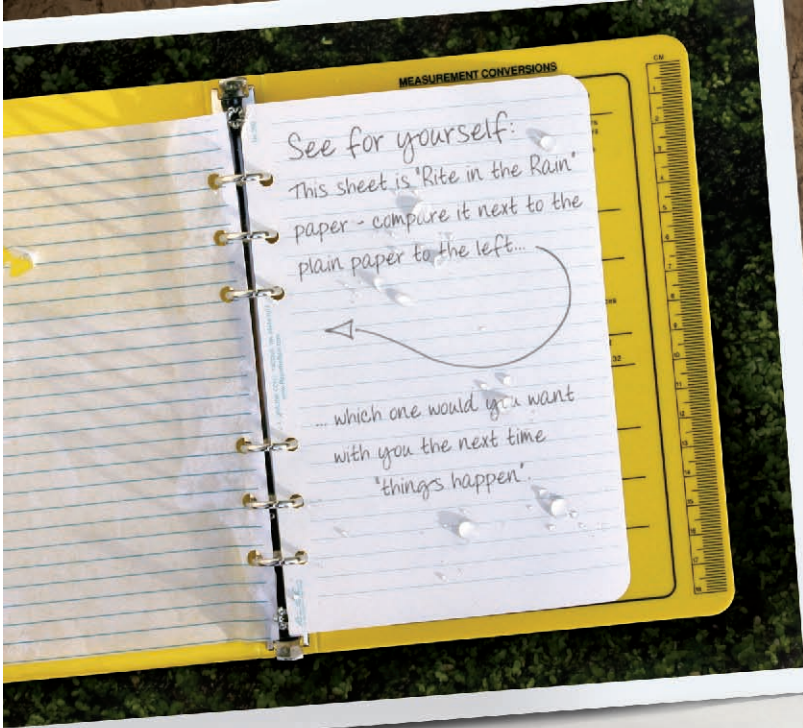 MEASUREMENT CONVERSIONS
CM
See for yourself:
This sheet is "Rite in the Rain"
paper - compare it next to the
plain paper to the left...
... which one would you want
with you the next time
"things happen".